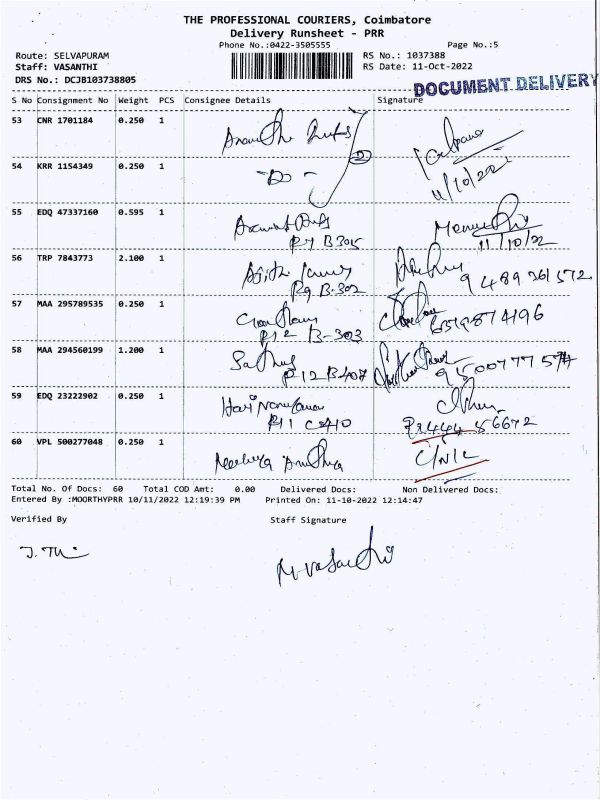 THE PROFESSIONAL COURIERS, Coimbatore
Delivery Runsheet - PRR
Phone No.:0422-3505555
Page No.:5
Route: SELVAPURAM
RS No.: 1037388
Staff: VASANTHI
RS Date: 11-Oct-2022
DRS No.: DCJB103738805
DOCUMENT DELIVERY
S No Consignment No Weight PCS Consignee Details Signature
53 CNR 1701184 0.250 1
54 KRR 1154349 0.250 1 -Do-
11/10/2022
55 EDQ 47337160 0.595 1
R7 B-305 11/10/22
56 TRP 7843773 2.100 1
R9 B-302 9489361572
57 MAA 295789535 0.250 1
R12 B-303 6379874196
58 MAA 294560199 1.200 1
R12 B-408 9500777574
59 EDQ 23222902 0.250 1 Hari Narayanan
R11 C-410
60 VPL 500277048 0.250 1 C/N/L
Total No. Of Docs: 60 Total COD Amt: 0.00 Delivered Docs: Non Delivered Docs:
Entered By :MOORTHYPRR 10/11/2022 12:19:39 PM Printed On: 11-10-2022 12:14:47
Verified By Staff Signature